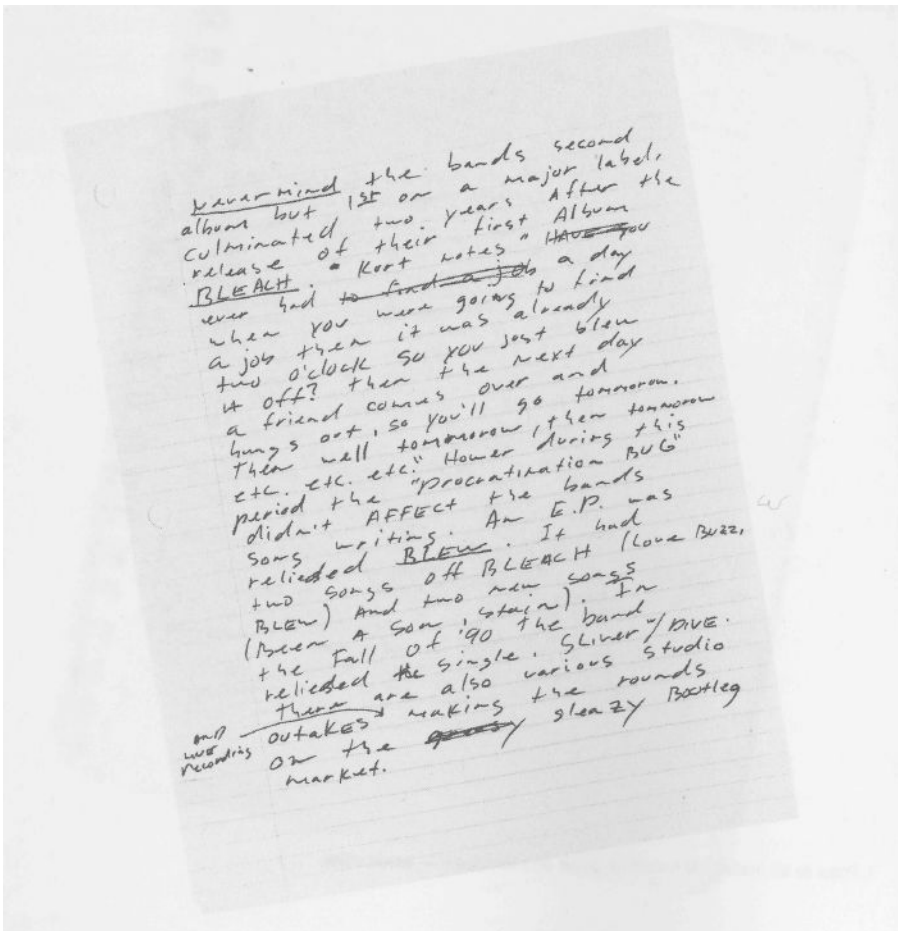 Nevermind the bands second
album but 1st on a major label,
culminated two years After the
release of their first Album
BLEACH. "Kurt notes" HAVE you
ever had to find a job a day
when you were going to find
a job then it was already
two o'clock so you just blew
it off? then the next day
a friend comes over and
hangs out, so you'll go tommorow.
Then well tommorow, then tommorow
etc. etc. etc." Hower during this
period the "procratination BUG"
didn't AFFECT the bands
song writing. An E.P. was
relieased BLEW. It had
two songs off BLEACH (Love Buzz,
BLEW) And two new songs
(Been A Son, Stain). In
the Fall of '90 the band
relieased the single. SLIVER"/DIVE.
there are also various studio
outakes making the rounds
AND
LIVE
recording
on the greasy sleazy Bootleg
market.